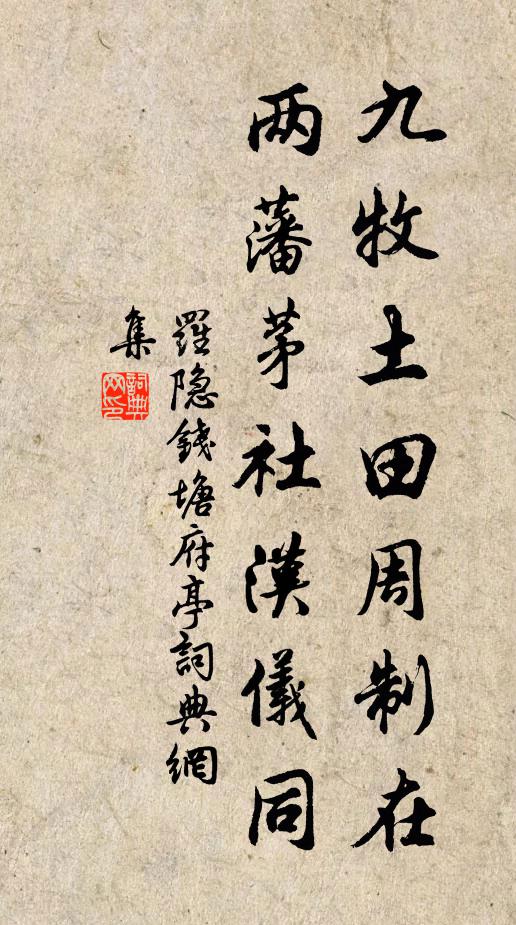 九牧土田周制在
两藩茅社漢儀同
羅隐錢塘府亭詞典網
集
詞典
网印